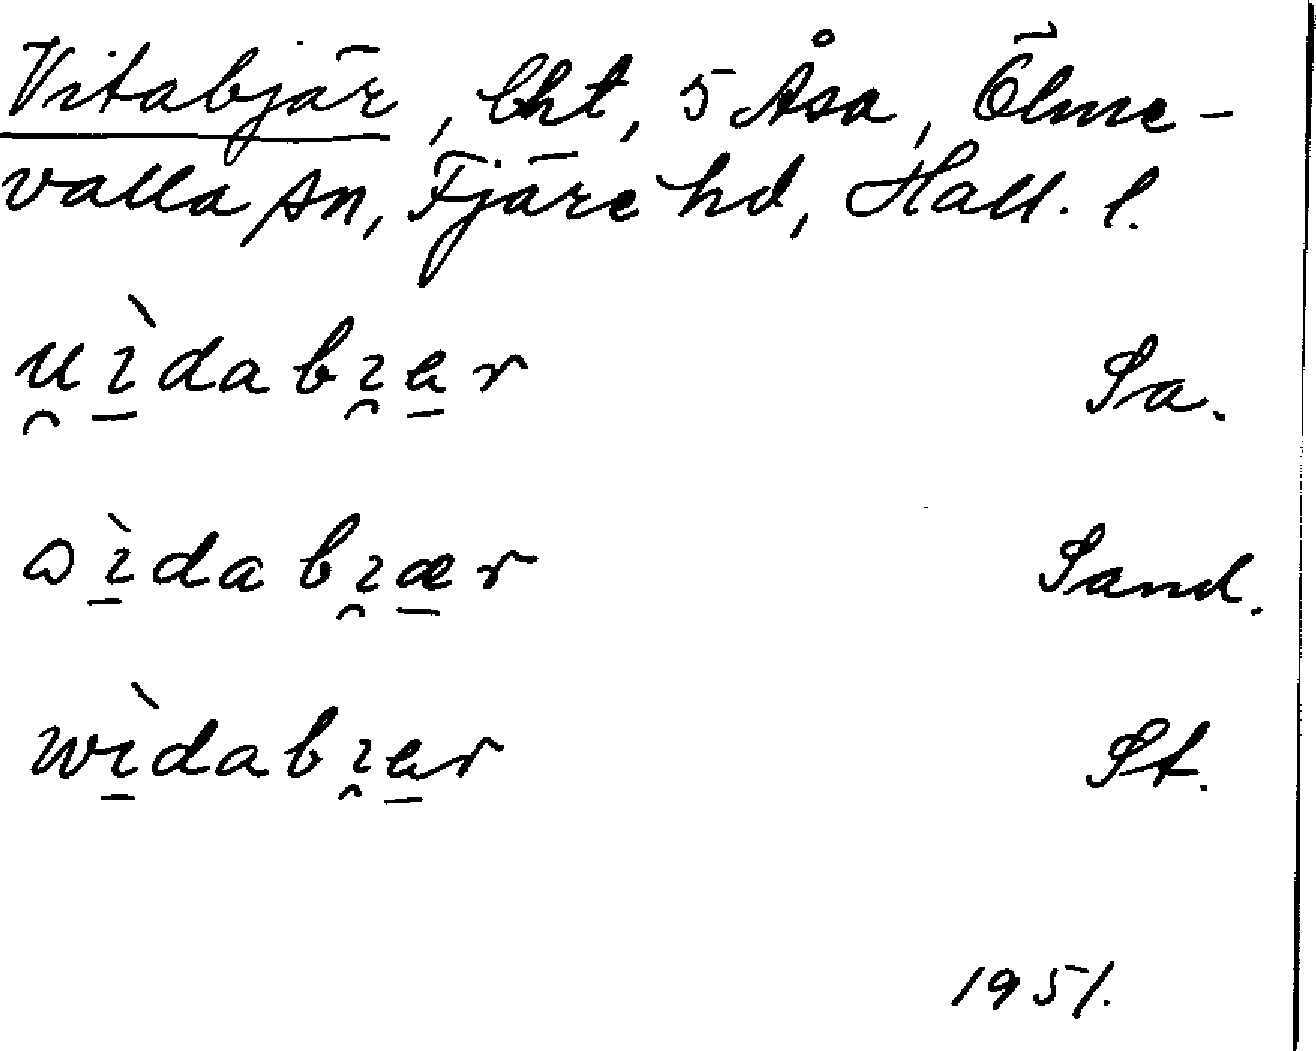 Vitabjär, lht, 5 Åsa, Ölme-
valla sn, Fjäre hd, Hall. l.
u̯ı̱̀dabı̯a̱r Sa.
ɷı̱̀dabı̯æ̱r Sand.
wı̱̀dabı̯a̱r St.
1951.